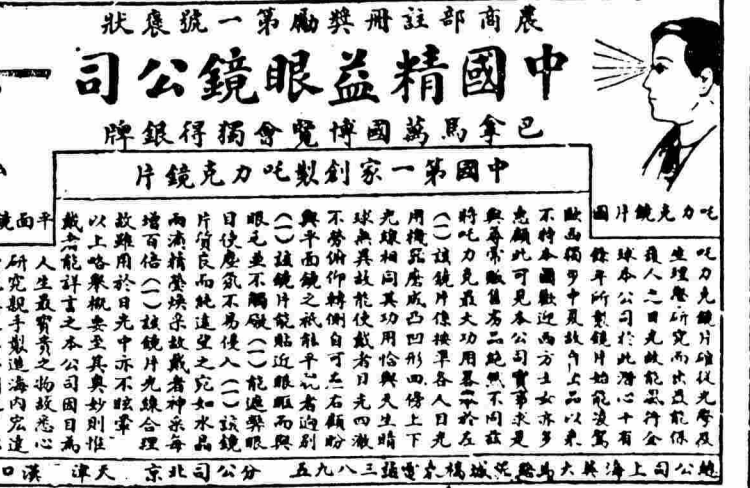 農商部註冊獎勵第一號褒狀
中國精益眼鏡公司
巴拿馬萬國博覽會獨得銀牌
中國第一家創製吒力克鏡片
吒力克鏡片圖
吒力克鏡片確從光學及
生理學研究而出故能保
護人之目光故能風行全
球本公司於此潛心十有
餘年所製鏡片始能凌駕
歐西獨步中夏故上品以來
不特本國歡迎西方士女亦多
惠顧此可見本公司實事求是
與尋常販售劣品純然不同茲
將吒力克最大功用畧舉於左
(一)該鏡片係按準各人目光
用機器磨成凸凹形四傍上下
光線相同其功用恰與天生睛
球無異故能使戴者目光四澈
不勞俯仰轉側自可左右顧盼
與平面鏡之祇能平視者迥別
(一)該鏡片能貼近眼眶而與
眼毛並不觸礙(一)能遮與眼
目使塵氛不易侵入(一)該鏡
片質良而純遠望之宛如水晶
兩流精瑩煥采故戴者神采每
增百倍(一)該鏡片光線合理
故雖用於日光中亦不眩暈
以上略舉概要至其奧妙則惟
戴者能詳言之本公司因目為
人生最寶貴之物故悉心
研究親手製造海內宏達
平面鏡
總公司上海英大馬路泥城橋東電話三八九五 分公司北京 天津 漢口